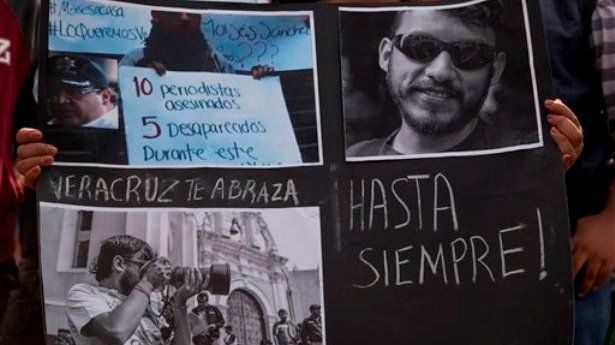 #MoisesoCasa
#LoQueremosVi
Moisés Sánchez
???
10 periodistas
asesinados
5 Desaparecidos
Durante este
VERACRUZ TE ABRAZA
HASTA
SIEMPRE!